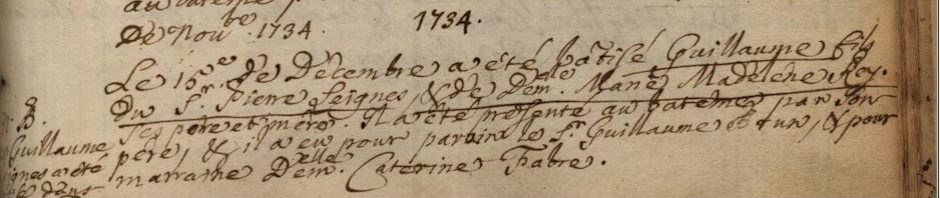 au batême p
De Nou.bre 1734.
1734.
Le 15.me de Décembre a eté batisé Guillaume fils
du S.r Pierre Seignes, & de Dem.le Marie Madelene Roy.
ses pere et mere. Il a été présenté au batême par son
pere, & il a eu pour parrin le S.r Guillaume & pour
marraine Dem.elle Caterine Fabre.
B.
Guillaume
a eté
dans